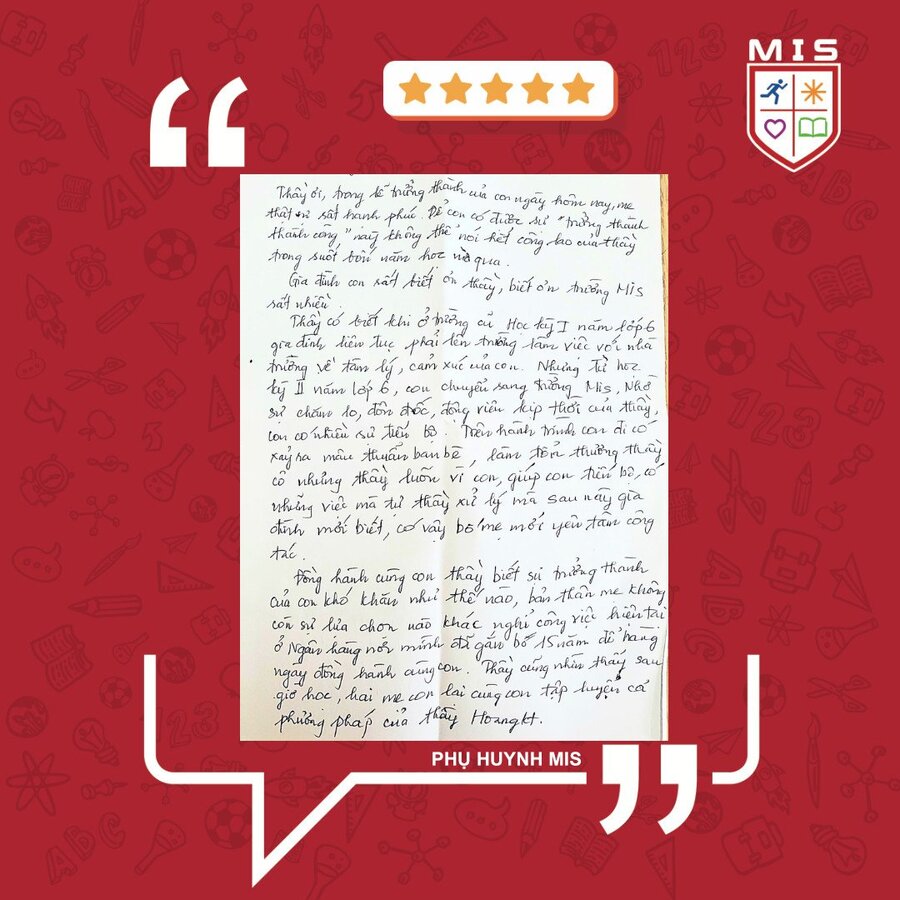 MIS
Thầy ơi, trong lễ trưởng thành của con ngày hôm nay, mẹ
thật sự rất hạnh phúc. Để con có được sự "trưởng thành
thành công" này không thể nói hết công lao của thầy
trong suốt bốn năm học vừa qua.
Gia đình con rất biết ơn thầy, biết ơn trường MIS
rất nhiều.
Thầy có biết khi ở trường cũ Học kỳ I năm lớp 6
gia đình liên tục phải lên trường làm việc với nhà
trường về tâm lý, cảm xúc của con. Nhưng từ học
kỳ II năm lớp 6, con chuyển sang trường Mis, Nhờ
sự chăm lo, đôn đốc, động viên kịp thời của thầy,
con có nhiều sự tiến bộ. Trên hành trình con đi có
xảy ra mâu thuẫn bạn bè, làm tổn thương thầy
cô nhưng thầy luôn vì con, giúp con tiến bộ, có
những việc mà tự thầy xử lý mà sau này gia
đình mới biết, có vậy bố mẹ mới yên tâm công
tác.
Đồng hành cùng con thầy biết sự trưởng thành
của con khó khăn như thế nào, bản thân mẹ không
còn sự lựa chọn nào khác nghỉ công việc hiện tại
ở Ngân hàng nơi mình đã gắn bó 15 năm để hàng
ngày đồng hành cùng con. Thầy cũng nhìn thấy sau
giờ học, hai mẹ con lại cùng con tập luyện cả
phương pháp của thầy
PHỤ HUYNH MIS